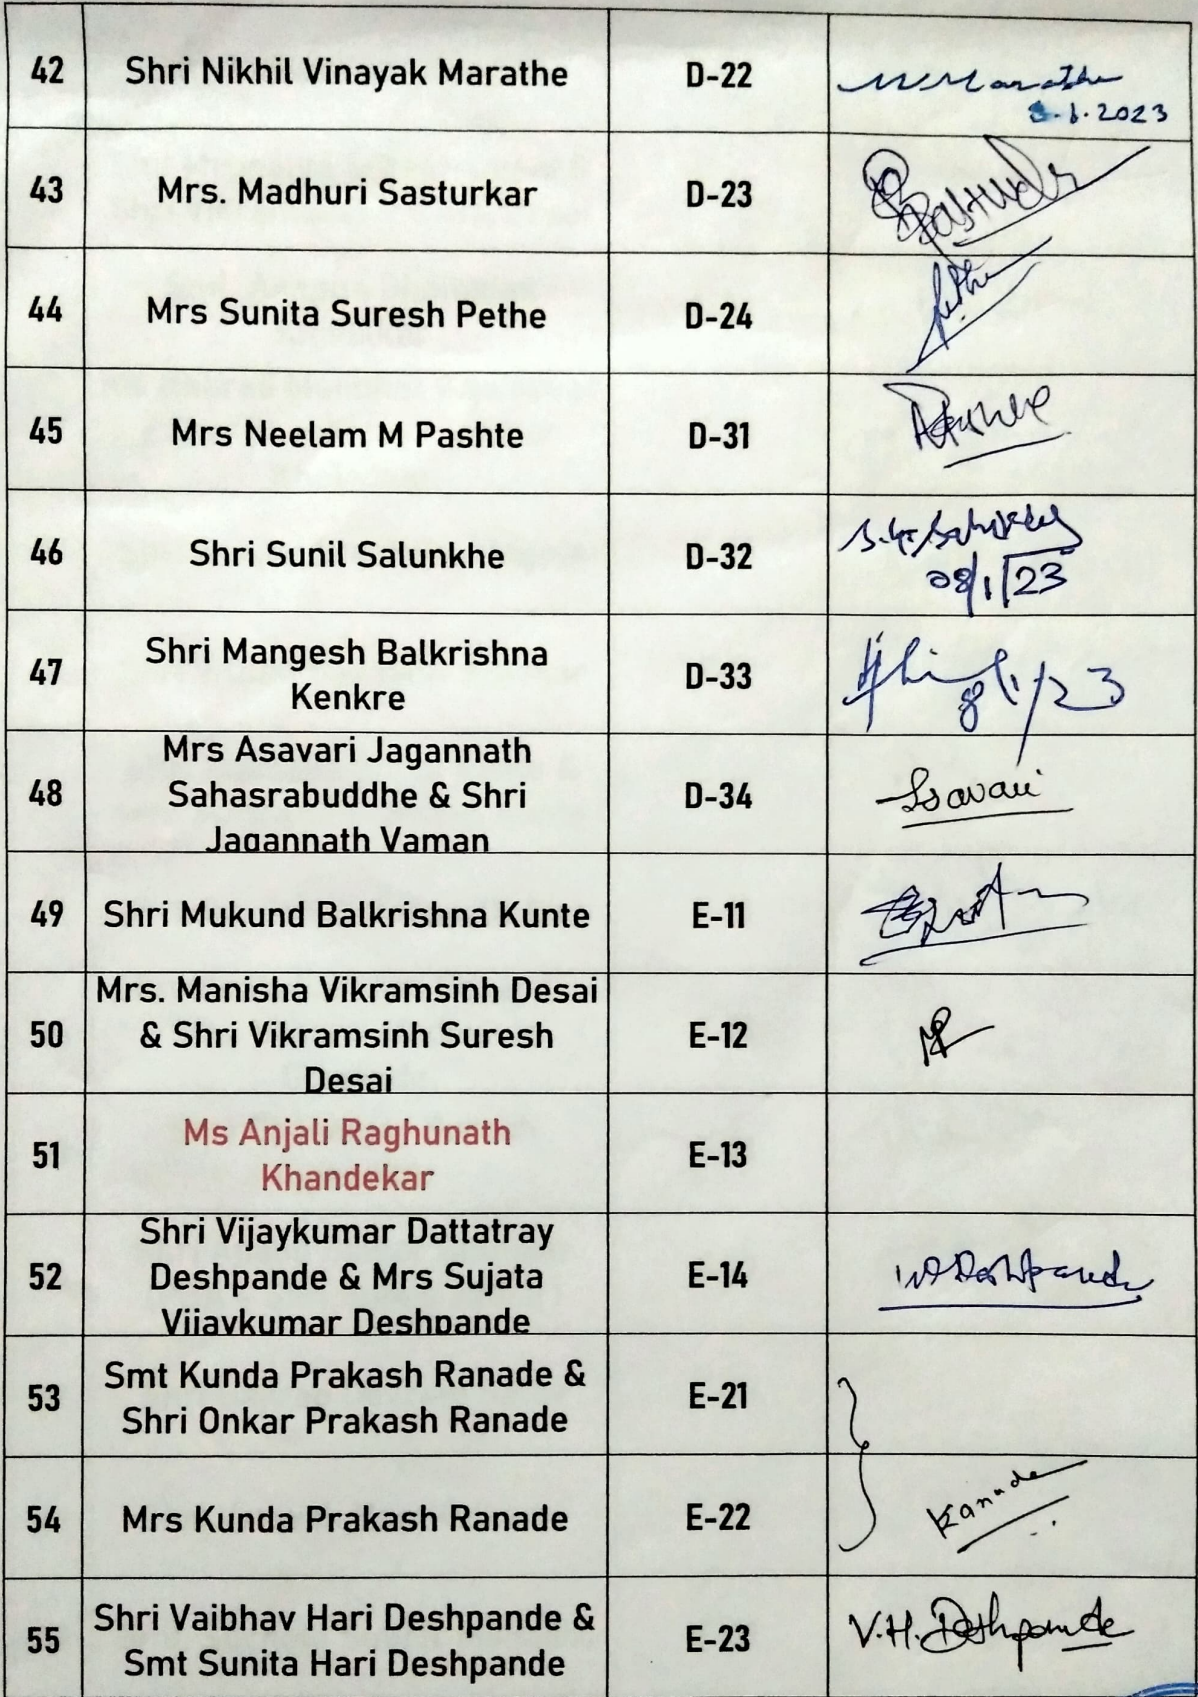 42 Shri Nikhil Vinayak Marathe D-22 Marathe
.1.2023
43 Mrs. Madhuri Sasturkar D-23
44 Mrs Sunita Suresh Pethe D-24 Pethe
45 Mrs Neelam M Pashte D-31
46 Shri Sunil Salunkhe D-32
08/1/23
47 Shri Mangesh Balkrishna
Kenkre D-33
8/1/23
48 Mrs Asavari Jagannath
Sahasrabuddhe & Shri
Jagannath Vaman D-34 Asavari
49 Shri Mukund Balkrishna Kunte E-11
50 Mrs. Manisha Vikramsinh Desai
& Shri Vikramsinh Suresh
Desai E-12
51 Ms Anjali Raghunath
Khandekar E-13
52 Shri Vijaykumar Dattatray
Deshpande & Mrs Sujata
Vijaykumar Deshpande E-14 Deshpande
53 Smt Kunda Prakash Ranade &
Shri Onkar Prakash Ranade E-21
54 Mrs Kunda Prakash Ranade E-22 Kanade
55 Shri Vaibhav Hari Deshpande &
Smt Sunita Hari Deshpande E-23 V.H.Deshpande